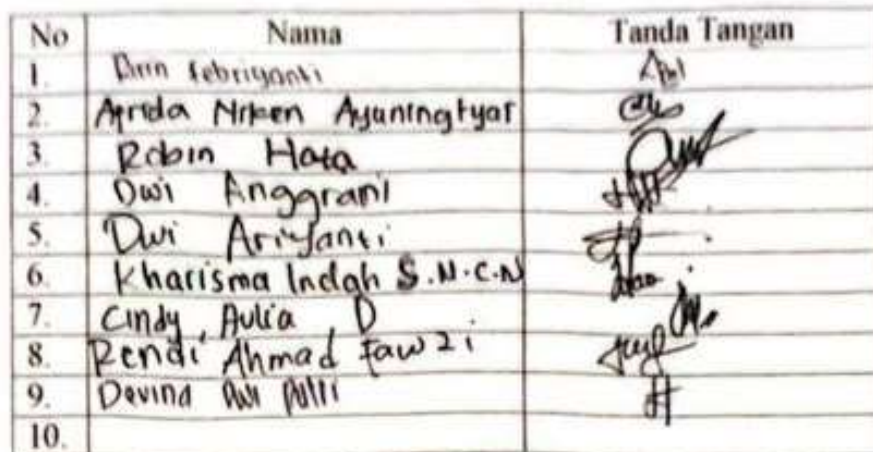 No Nama Tanda Tangan
1. Febriyanti
2. Aprida Niken Ayuningtyas
3. Robin Hata
4. Dwi Anggrani
5. Dwi Ariyanti
6. Kharisma Indah S.N.C.N
7. Cindy Aulia D
8. Rendi Ahmad Fawzi
9. Devina
10.